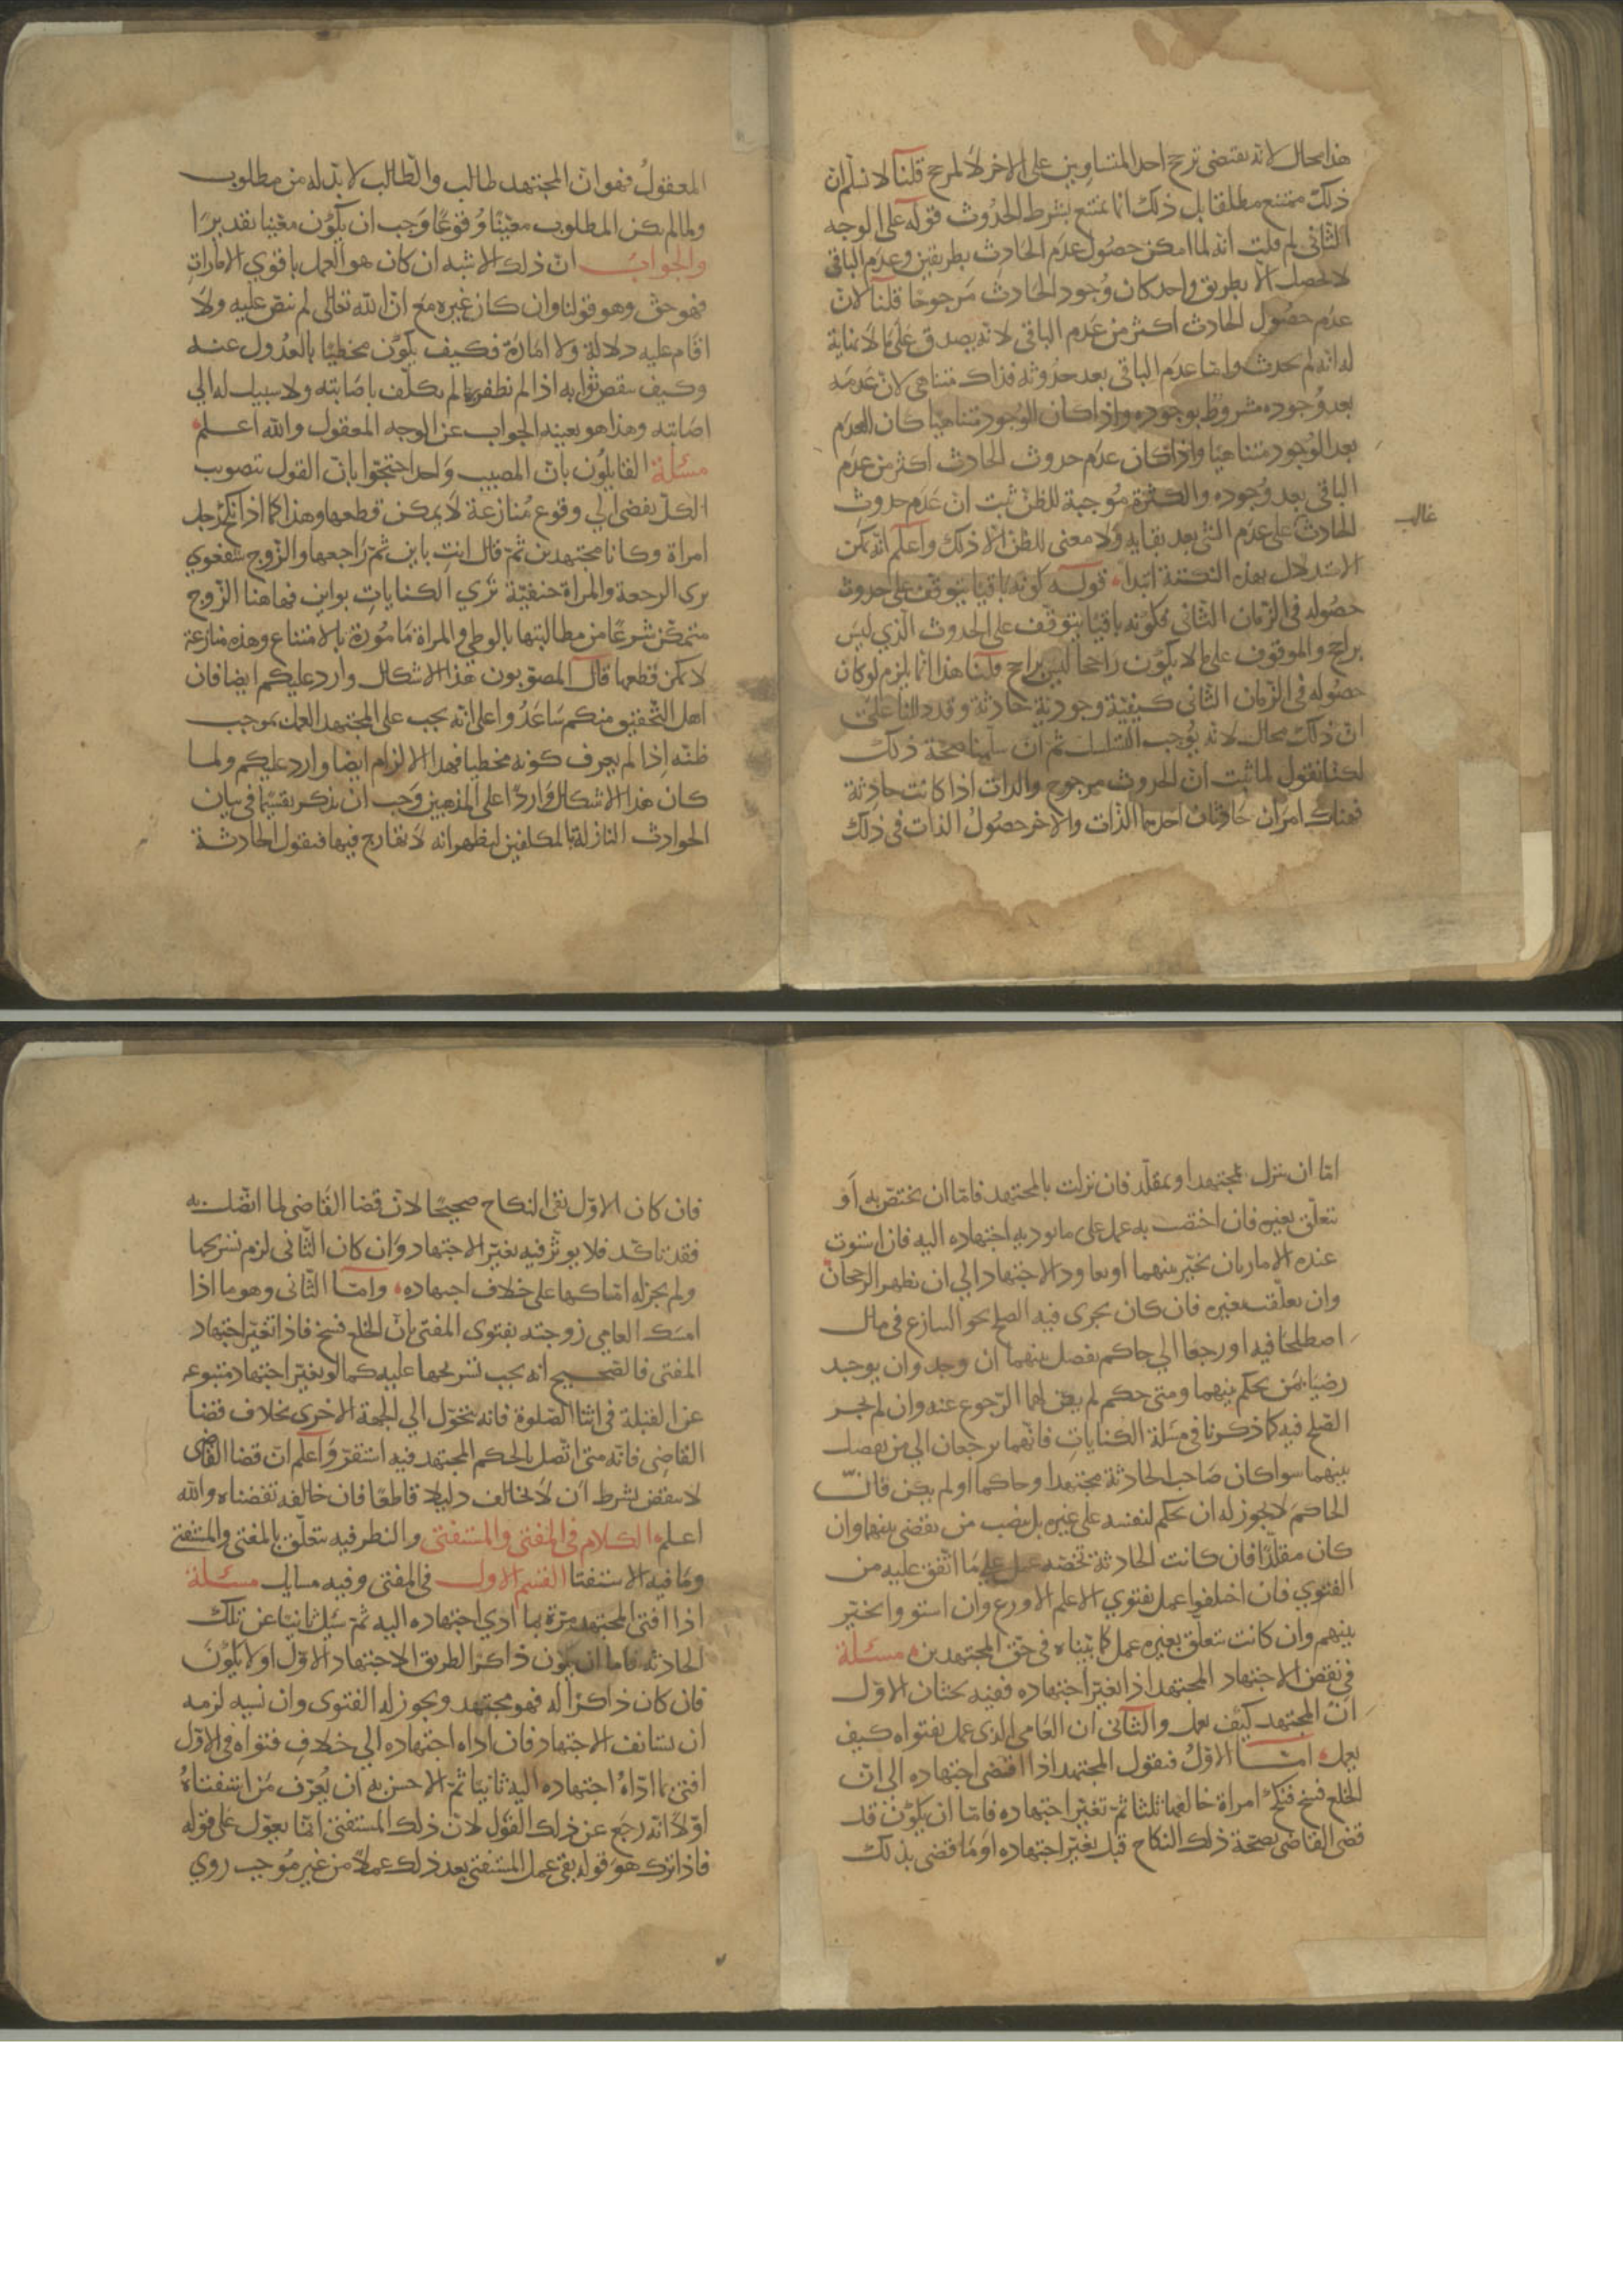 هذا محال لانه يقتضى ترجح احد المتساويين على الاخر لا لمرجح قلنا لا نسلم ان
ذلك ممتنع مطلقا بل ذلك انما يمتنع بشرط الحدوث قوله على الوجه
الثانى لم قلت انه لما امكن حصول عدم الحادث بطريقين وعدم الباقى
لا يحصل الا بطريق واحد كان وجود الحادث مرجوحا قلنا لان
عدم حصول الحادث اكثر من عدم الباقى لانه يصدق على ما لا نهاية
له انه لم يحدث واما عدم الباقى بعد حدوثه فذاك متناهى لان عدمه
بعد وجوده مشروط بوجوده واذا كان الوجود متناهيا كان العدم
بعد الوجود متناهيا واذا كان عدم حدوث الحادث اكثر من عدم
الباقى بعد وجوده والكثرة موجبة للظن ثبت ان عدم حدوث
الحادث على عدم الشى بعد بقايه ولا معنى للظن الا ذلك واعلم انه يمكن
غالب
الاستدلال بهذه النكتة ابتداء قوله كونه باقيا يتوقف على حدوث
حصوله فى الزمان الثانى فكونه باقيا يتوقف على الحدوث الذى ليس
براجح والموقوف على ما لا يكون راجحا ليس براجح قلنا هذا انما يلزم لو كان
حصوله فى الزمان الثانى كيفية وجودية حادثة وقد دللنا على
ان ذلك محال لانه يوجب التسلسل ثم ان سلمنا صحة ذلك
لكنا نقول لما ثبت ان الحدوث مرجوح والذات اذا كانت حادثة
فهناك امران حادثان احدهما الذات والاخر حصول الذات فى ذلك
المعقول فهو ان المجتهد طالب والطالب لا بد له من مطلوب
ولما لم يكن المطلوب معينا وقوعا وجب ان يكون معينا تقديرا
والجواب ان ذلك الاشبه ان كان هو العمل باقوى الامارات
فهو حق وهو قولنا وان كان غيره مع ان الله تعالى لم ينص عليه ولا
اقام عليه دلالة ولا امارة فكيف يكون مخطيا بالعدول عنه
وكيف ينقص ثوابه اذا لم يظفر بما لم يكلف باصابته ولا سبيل له الى
اصابته وهذا هو بعينه الجواب عن الوجه المعقول والله اعلم
مسئلة القايلون بان المصيب واحد احتجوا بان القول بتصويب
الكل يفضى الى وقوع منازعة لا يمكن قطعها وهذا كما اذا نكح رجل
امراة وكانا مجتهدين ثم قال انت باين ثم راجعها والزوج شفعوى
يرى الرجعة والمراة حنفية ترى الكنايات بواين فهاهنا الزوج
متمكن شرعا من مطالبتها بالوطى والمراة مامورة بالامتناع وهذه منازعة
لا يمكن قطعها قال المصوبون هذا الاشكال وارد عليكم ايضا فان
اهل التحقيق منكم ساعدوا على انه يجب على المجتهد العمل بموجب
ظنه اذا لم يعرف كونه مخطيا فهذا الالزام ايضا وارد عليكم ولما
كان هذا الاشكال واردا على المذهبين وجب ان نذكر تقسيما فى بيان
الحوادث النازلة بالمكلفين ليظهر انه لا تعارج فيها فنقول الحادثة
اما ان تنزل بمجتهد او بمقلد فان نزلت بالمجتهد فاما ان تختص به او
تتعلق بغيره فان اختصت به عمل على ما يودى اجتهاده اليه فان استوت
عنده الامارتان تخير بينهما او يعاود الاجتهاد الى ان يظهر الرجحان
وان تعلقت بغيره فان كان يجرى فيه الصلح نحو التنازع فى مال
اصطلحا فيه او رجعا الى حاكم يفصل بينهما ان وجد وان لم يوجد
رضيا بمن يحكم بينهما ومتى حكم لم يكن لهما الرجوع عنه وان لم يجر
الصلح فيه كما ذكرنا فى مسئلة الكنايات فانهما يرجعان الى من يفصل
بينهما سوا كان صاحب الحادثة مجتهدا وحاكما او لم يكن فان
الحاكم لا يجوز له ان يحكم لنفسه على غيره بل ينصب من يقضى بينهما وان
كان مقلدا فان كانت الحادثة تخصه عمل على ما اتفق عليه من
الفتوى فان اختلفوا عمل بفتوى الاعلم الاورع وان استووا تخير
بينهم وان كانت تتعلق بغيره عمل كما بيناه فى حق المجتهدين مسئلة
فى نقض الاجتهاد المجتهد اذا تغير اجتهاده ففيه بحثان الاول
ان المجتهد كيف يعمل والثانى ان العامى الذى عمل بفتواه كيف
يعمل اما الاول فنقول المجتهد اذا افضى اجتهاده الى ان
الخلع فسخ فنكح امراة خالعها ثلثا ثم تغير اجتهاده فاما ان يكون قد
قضى القاضى بصحة ذلك النكاح قبل تغير اجتهاده او ما قضى بذلك
فان كان الاول بقى النكاح صحيحا لان قضا القاضى لما اتصل به
فقد تاكد فلا يوثر فيه تغير الاجتهاد وان كان الثانى لزم تسريحها
ولم يجز له امساكها على خلاف اجتهاده واما الثانى وهو ما اذا
امسك العامى زوجته بفتوى المفتى بان الخلع فسخ فاذا تغير اجتهاد
المفتى فالصحيح انه يجب تسريحها عليه كما لو تغير اجتهاد متبوعه
عن القبلة فى اثنا الصلوة فانه يتحول الى الجهة الاخرى بخلاف قضا
القاضى فانه متى اتصل بالحكم المجتهد فيه استقر واعلم ان قضا القاضى
لا ينقض بشرط ان لا يخالف دليلا قاطعا فان خالفه نقضناه والله
اعلم الكلام فى المفتى والمستفتى والنظر فيه يتعلق بالمفتى والمستفتى
وما فيه الاستفتا القسم الاول فى المفتى وفيه مسايل مسئلة
اذا افتى المجتهد مرة بما ادى اجتهاده اليه ثم سيل ثانيا عن تلك
الحادثة فاما ان يكون ذاكرا لطريق الاجتهاد الاول او لا يكون
فان كان ذاكرا له فهو مجتهد ويجوز له الفتوى وان نسيه لزمه
ان يستانف الاجتهاد فان اداه اجتهاده الى خلاف فتواه فى الاول
افتى بما اداه اجتهاده اليه ثانيا ثم الاحسن به ان يعرف من استفتاه
اولا انه رجع عن ذلك القول لان ذلك المستفتى انما يعول على قوله
فاذا ترك هو قوله بقى عمل المستفتى بعد ذلك عملا من غير موجب روى